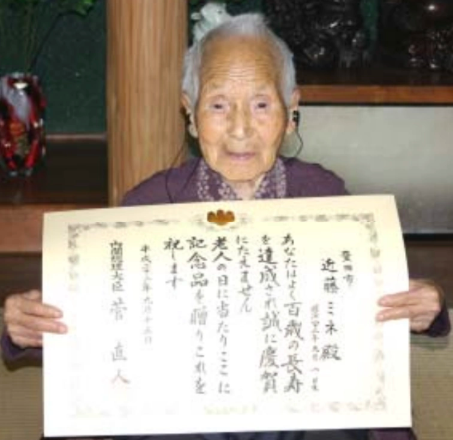 近藤ミネ殿
あなたはよく百歳の長寿
を達成され誠に慶賀
にたえません
老人の日に当たりここに
記念品を贈りこれを
祝します
平成二十二年九月十五日
内閣総理大臣 菅 直人